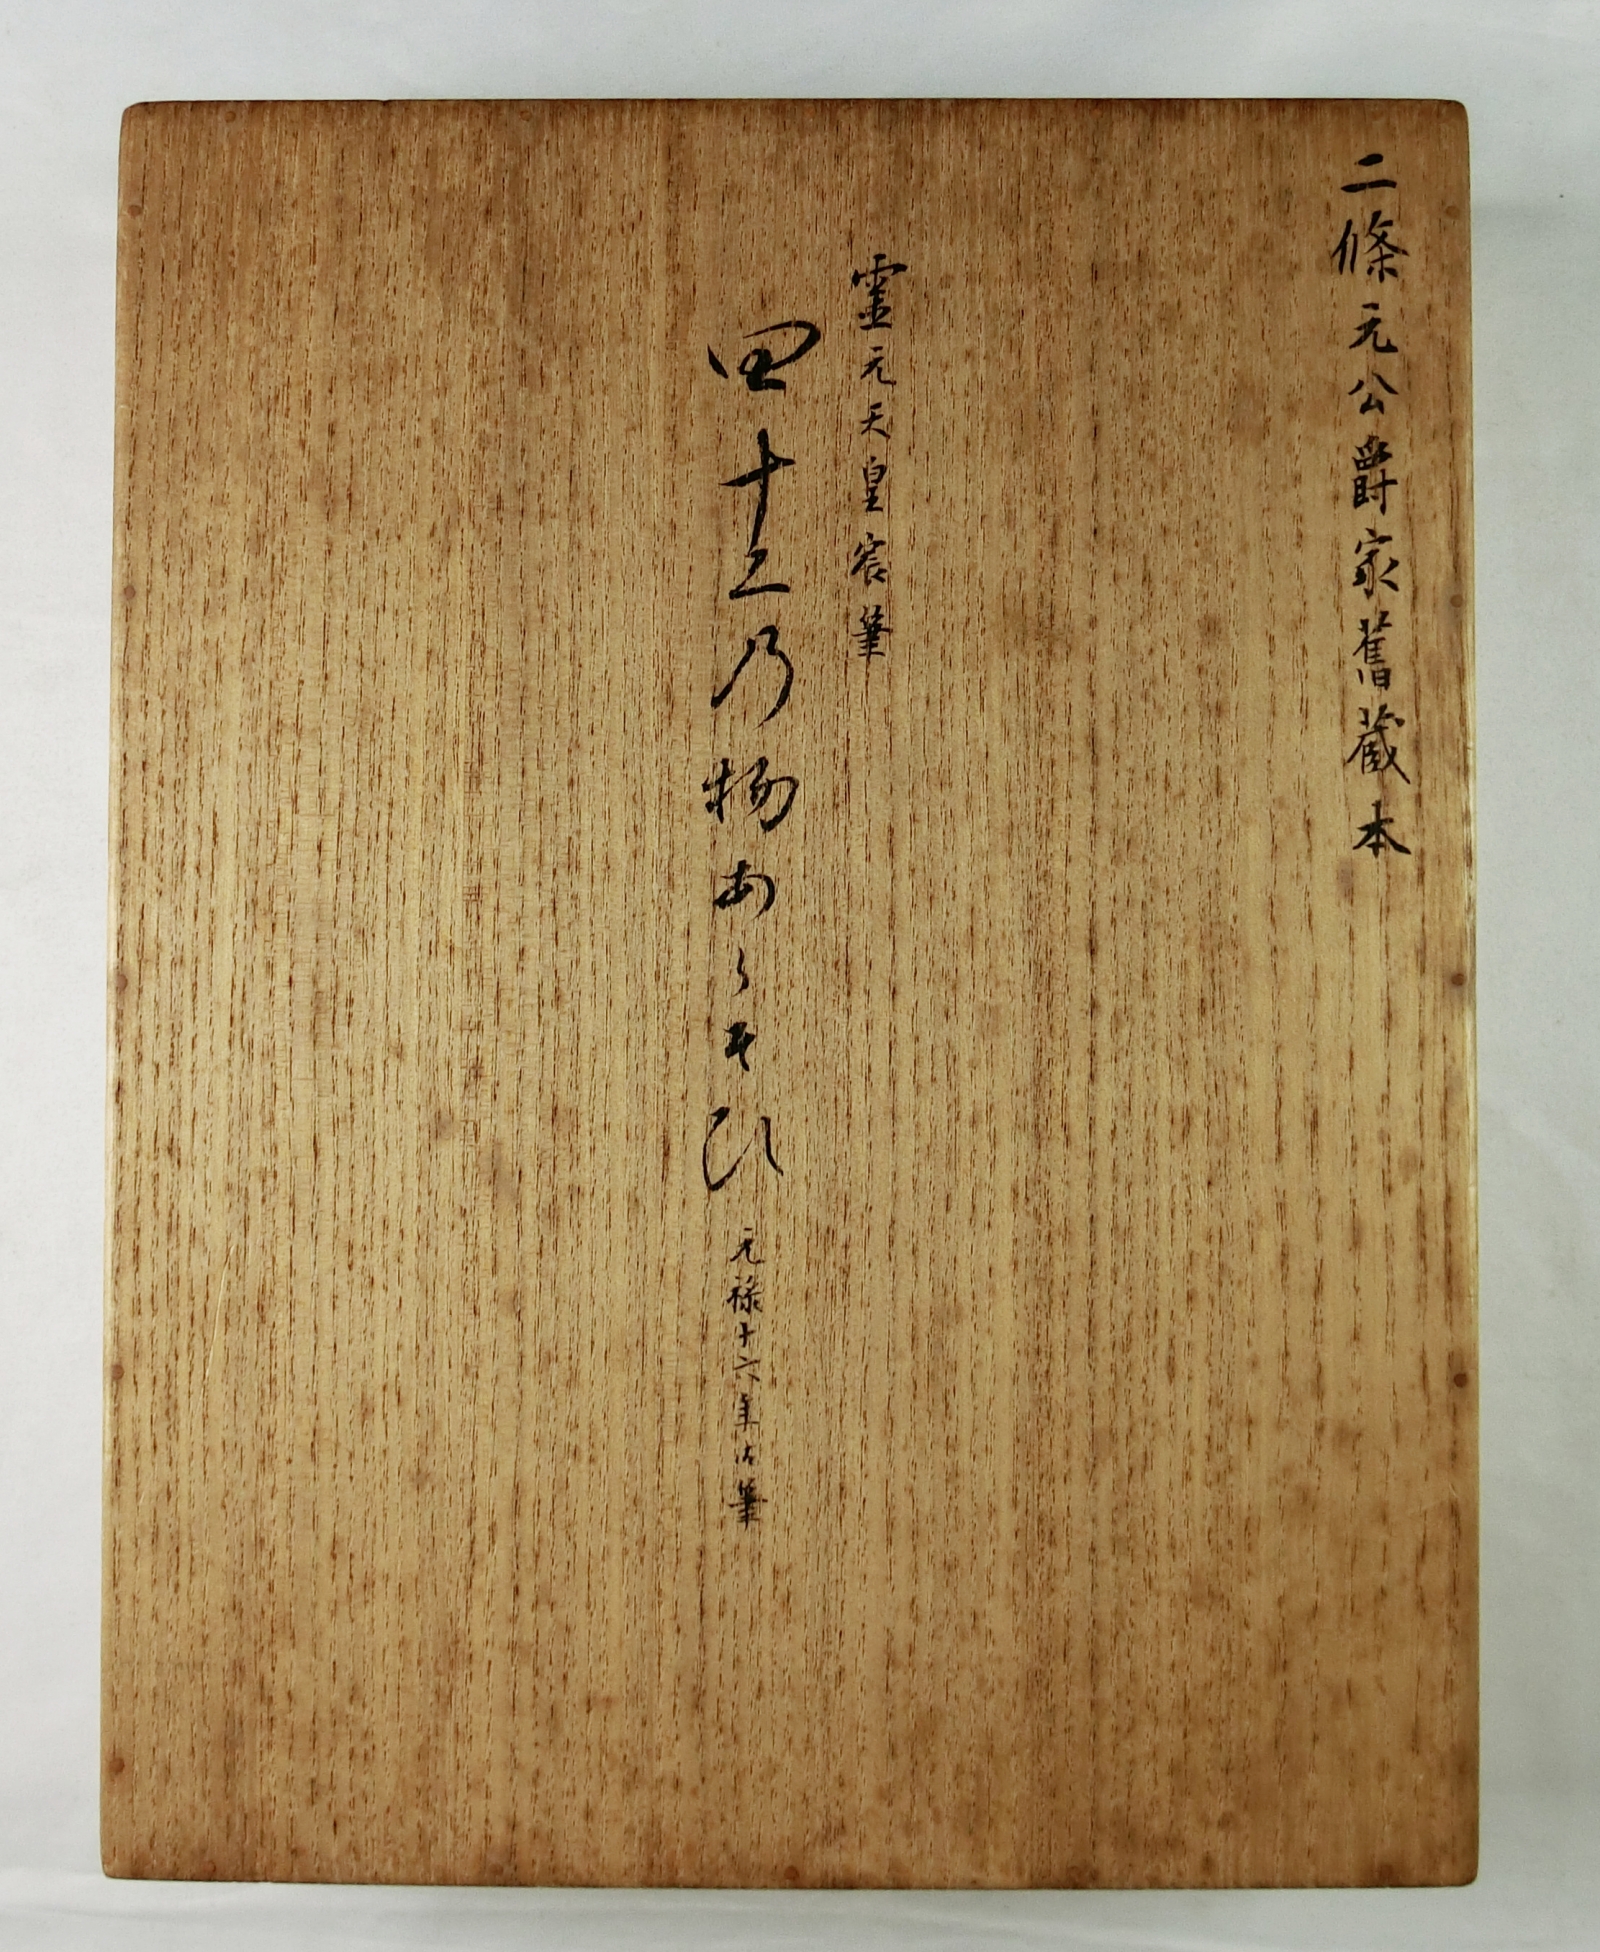 二條元公爵家舊蔵本
霊元天皇宸筆
四十二乃物あらそひ
元禄十六年御筆